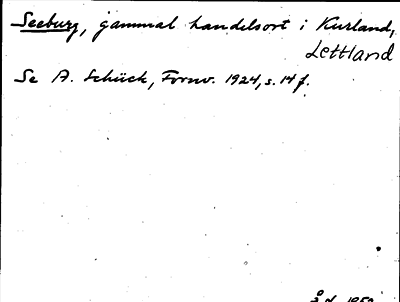 Seeburg, gammal handelsort i Kurland,
Lettland
Se A. Schück, Fornv. 1924, s. 14 f.